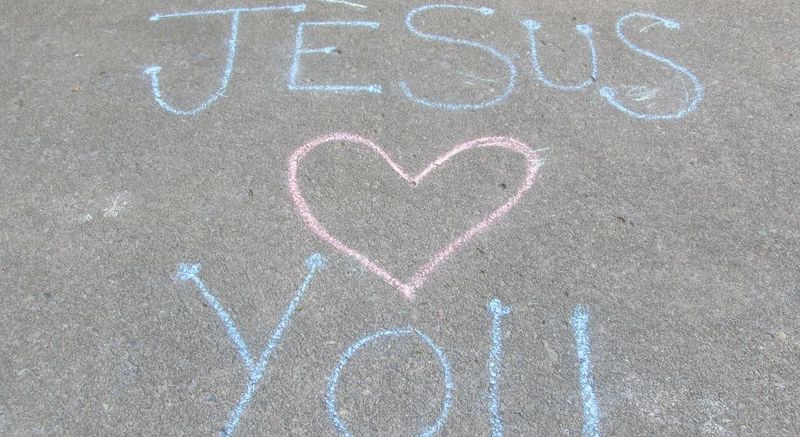 JESUS
♥
YOU